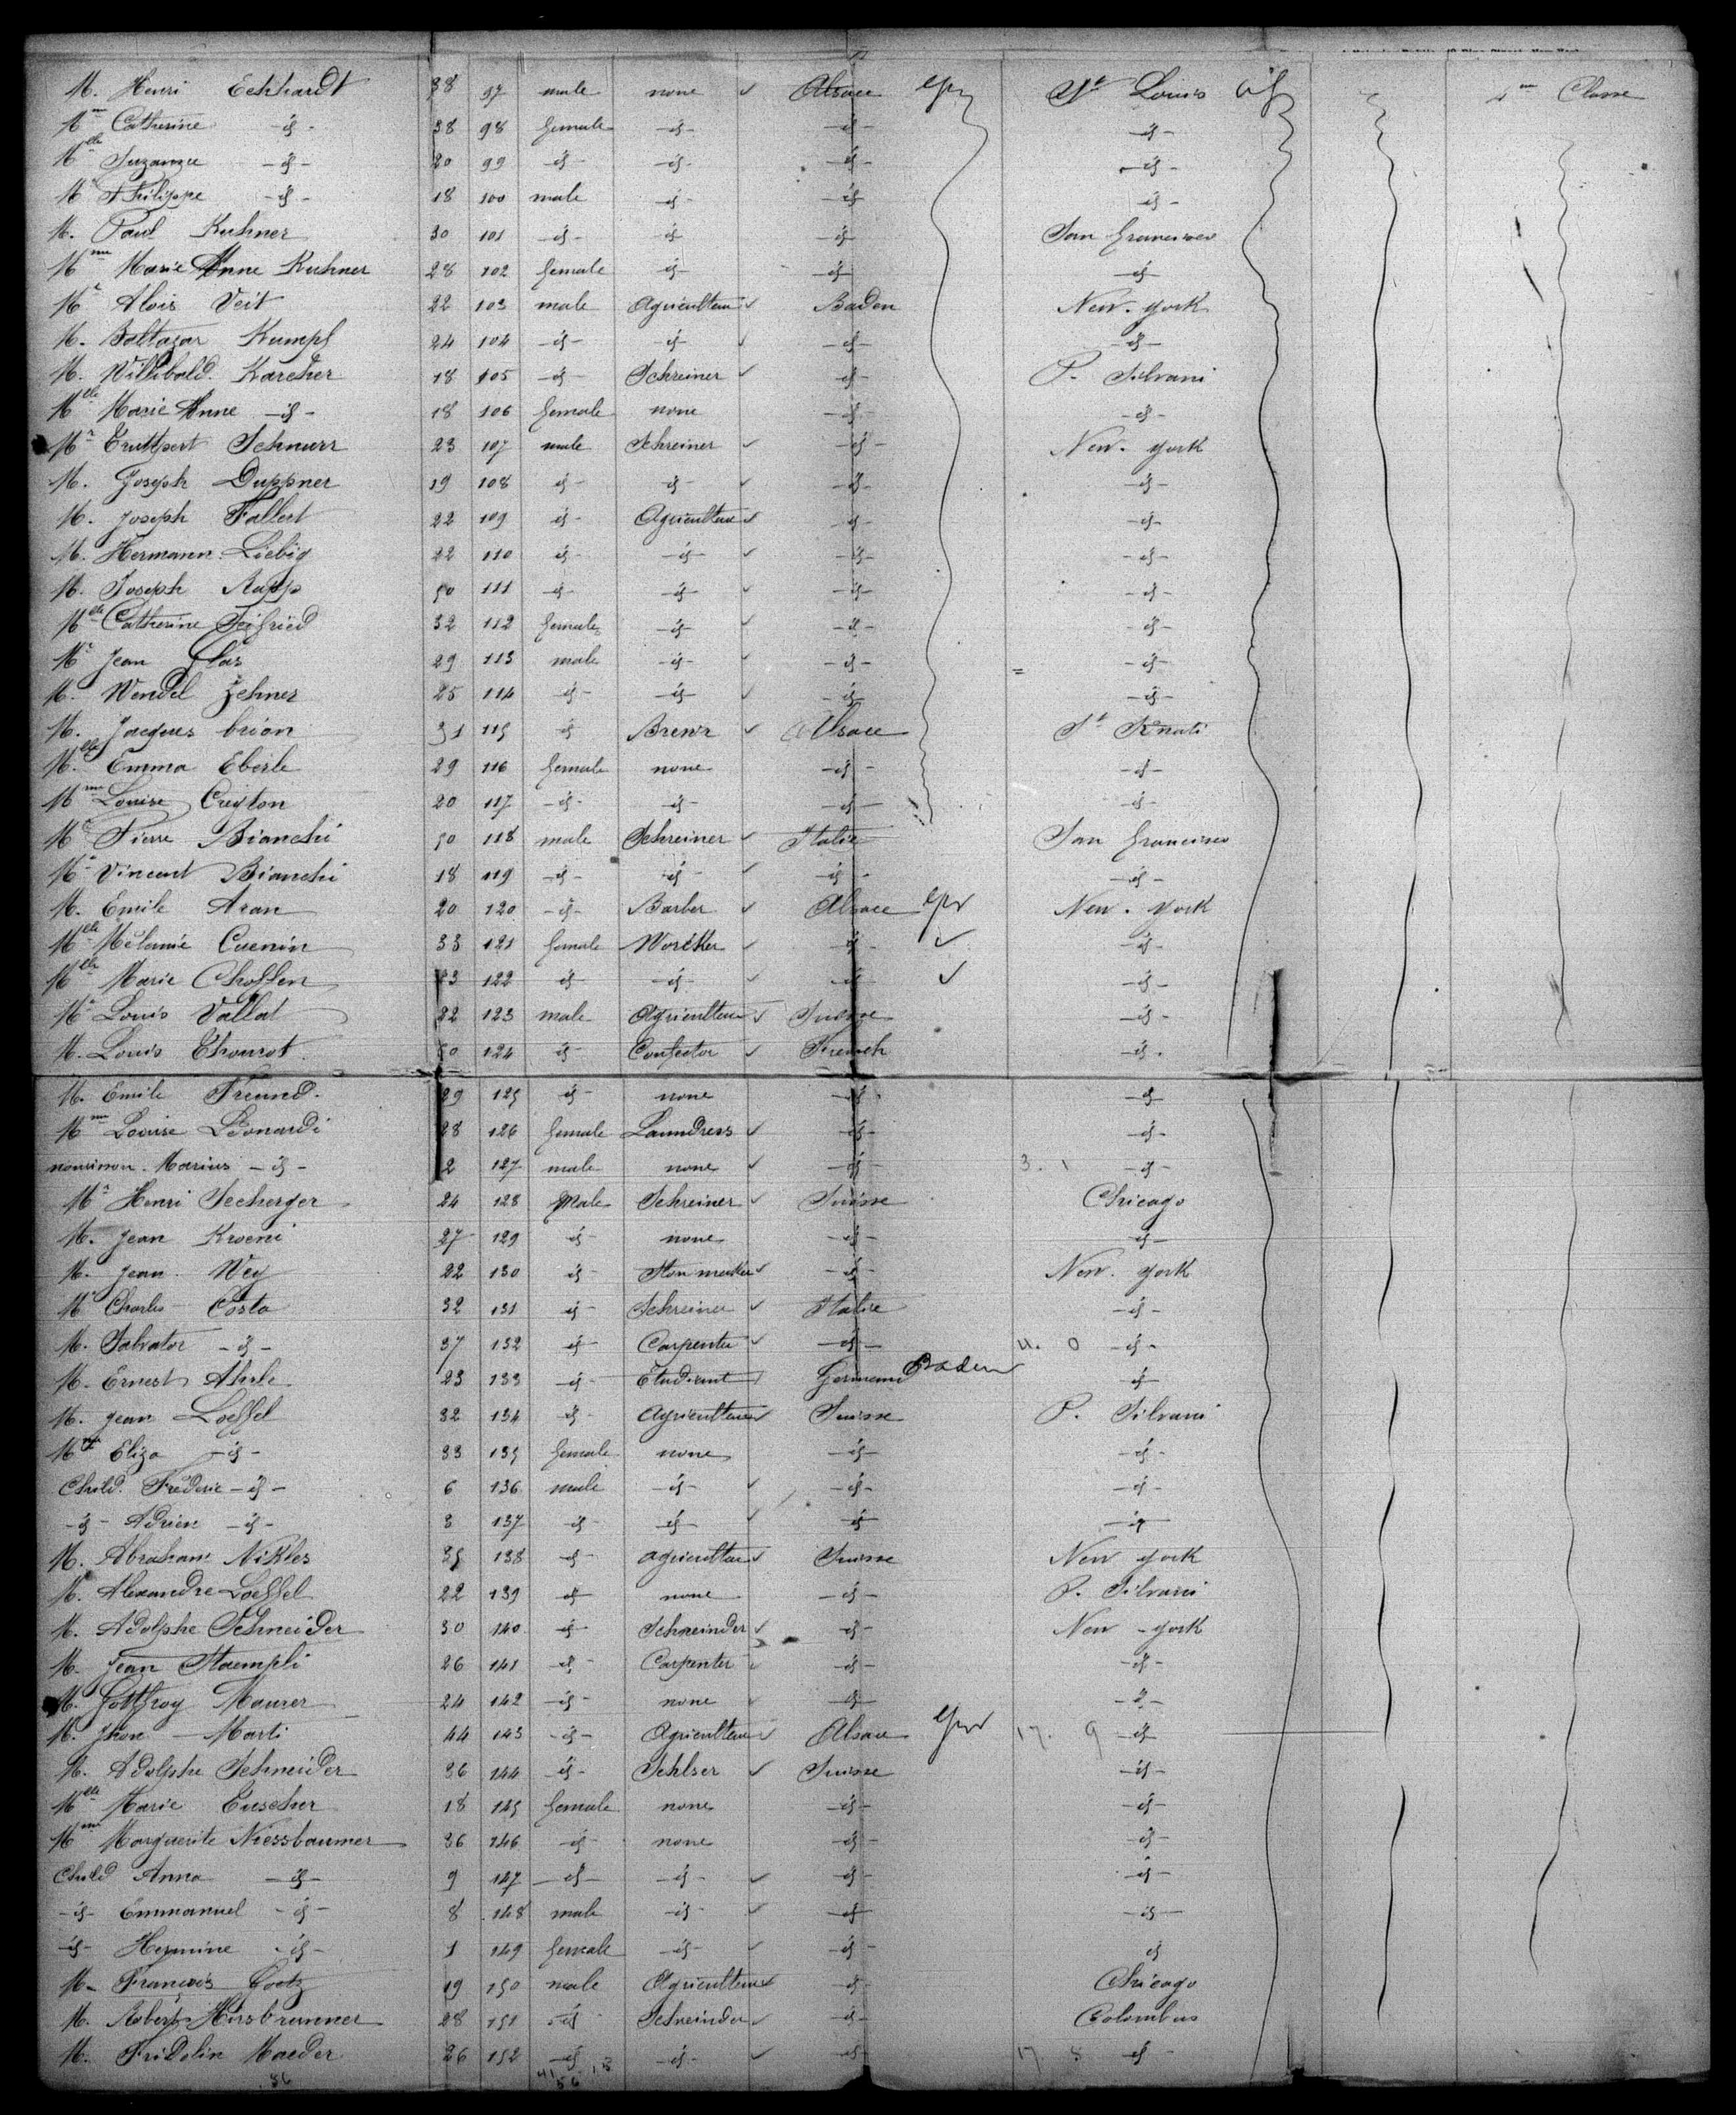 M. Henri Eckhardt 38 97 male none Alsace St Louis 4me Classe
Mme Catherine -id- 38 98 female -id- -id- -id-
Mlle Suzanne -id- 20 99 -id- -id- -id- -id-
Mr Philippe -id- 18 100 male -id- -id- -id-
M. Paul Kuhner 30 101 -id- -id- -id- San Francisco
Mme Marie Anne Kuhner 28 102 female -id- -id- -id-
Mr Alois Veit 22 103 male Agriculteur Baden New-york
M. Baltazar Kumpf 24 104 -id- -id- -id- -id-
M. Willibald Karcher 18 105 -id- Schreiner -id- P. Silvani
Mlle Marie Anne -id- 18 106 female none -id- -id-
Mr Schnurr 23 107 male Schreiner -id- New-york
M. Joseph Duppner 19 108 -id- -id- -id- -id-
M. Joseph Fallert 22 109 -id- Agriculteur -id- -id-
M. Hermann Liebig 22 110 -id- -id- -id- -id-
M. Joseph Rapp 50 111 -id- -id- -id- -id-
Mlle Catherine Seifried 32 112 female -id- -id- -id-
Mr Jean Glas 29 113 male -id- -id- -id-
M. Wendel Zehner 25 114 -id- -id- -id- -id-
M. Jacques brion 31 115 -id- Brewr Alsace St Senati
Mlle Emma Eberle 29 116 female none -id- -id-
Mme Louise Creyton 20 117 -id- -id- -id- -id-
Mr Pierre Bianchi 50 118 male Schreiner Italie San Francisco
Mr Vincent Bianchi 18 119 -id- -id- -id- -id-
M. Emile Aran 20 120 -id- Barber Alsace New-york
Mlle Mélanie Cuenin 33 121 female Worcker -id- -id-
Mlle Marie Choffen 23 122 -id- -id- -id- -id-
Mr Louis Vallat 22 123 male Agriculteur Suisse -id-
M. Louis Thourot 50 124 -id- Confector French -id-
M. Emile Freund 29 125 -id- none -id- -id-
Mme Louise Léonardi 28 126 female Laundress -id- -id-
nourisson Marius -id- 2 127 male none -id- 3. 1 -id-
Mr Henri Secherger 24 128 Male Schreiner Suisse Chicago
M. Jean Kroeni 27 129 -id- none -id- -id-
M. Jean Wey 22 130 -id- Ston macker -id- New-york
Mr Charles Costa 32 131 -id- Schreiner Italie -id-
M. Salvator -id- 37 132 -id- Carpenter -id- 4. 0 -id-
M. Ernest Ahrle 23 133 -id- Etudiant German Baden -id-
M. Jean Loeffel 32 134 -id- Agriculteur Suisse P. Silvani
Mme Eliza -id- 33 135 female none -id- -id-
Child. Fréderic -id- 6 136 male -id- -id- -id-
-id- Adrien -id- 3 137 -id- -id- -id- -id-
M. Abraham Nikles 35 138 -id- agriculteur Suisse New york
M. Alexandre Loeffel 22 139 -id- none -id- P. Silvani
M. Adolphe Schneider 30 140 -id- Schreinder -id- New-york
M. Jean Staempfli 26 141 -id- Carpenter -id- -id-
M. Gottfroy Maurer 24 142 -id- none -id- -id-
M. Jean Marti 44 143 -id- Agriculteur Alsace 17. 9 -id-
M. Adolphe Schneider 36 144 -id- Schlser Suisse -id-
Mlle Marie Euscher 18 145 female none -id- -id-
Mme Marguerite Niessbaumer 36 146 -id- none -id- -id-
Child Anna -id- 9 147 -id- -id- -id- -id-
-id- Emmanuel -id- 8 148 male -id- -id- -id-
-id- Hermine -id- 1 149 female -id- -id- -id-
M. François Goetz 19 150 male Agriculteur -id- Chicago
M. Robert Hirsbrunner 28 151 -id- Schreinder -id- Colombus
M. Fridolin Maeder 26 152 -id- -id- -id- 17 8 -id-
56 41 13
56